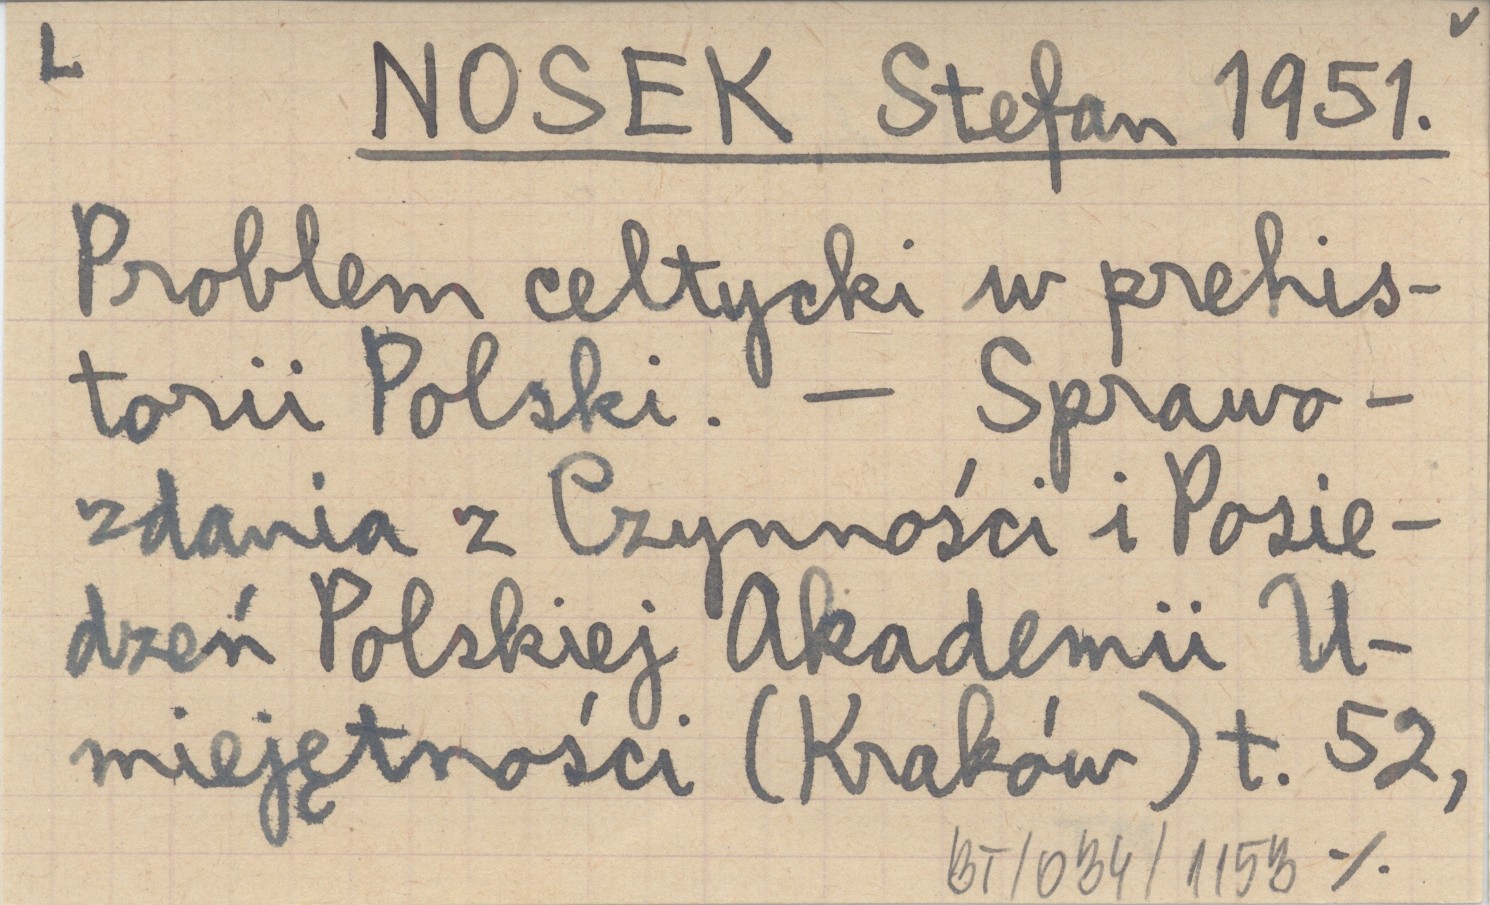 L NOSEK Stefan 1951. v
Problem celtycki w prehis-
torii Polski. — Sprawo-
zdania z Czynności i Posie-
dzeń Polskiej Akademii U-
miejętności (Kraków) t. 52,
BT/034/1153 ·/.